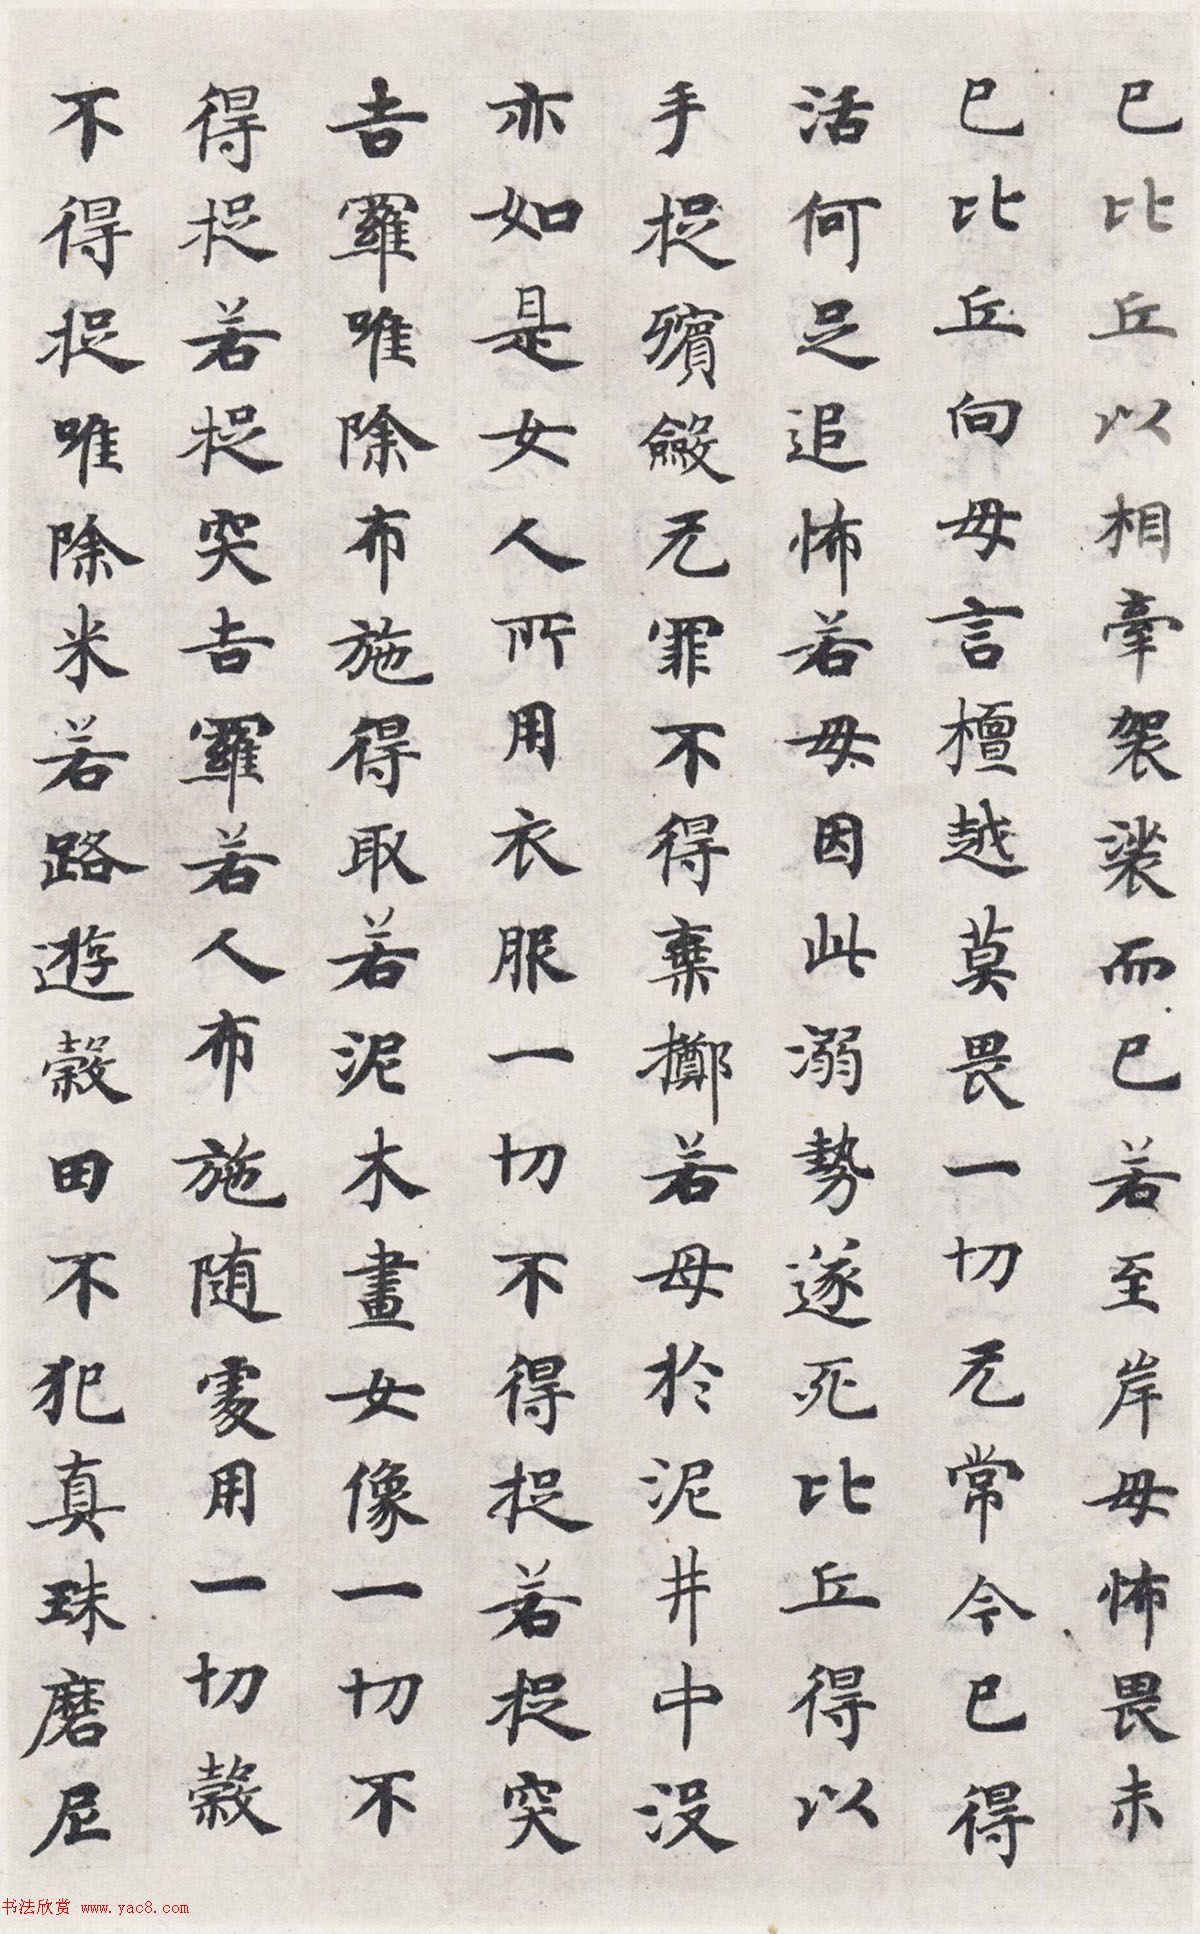 已比丘以相牽袈裟而已若至岸母怖畏未
已比丘向母言檀越莫畏一切无常今已得
活何足追怖若母因此溺勢遂死比丘得以
手捉殯斂无罪不得棄擲若母於泥井中没
亦如是女人所用衣服一切不得捉若捉突
吉羅唯除布施得取若泥木畫女像一切不
得捉若捉突吉羅若人布施随處用一切穀
不得捉唯除米若路遊穀田不犯真珠磨尼
书法欣赏 www.yac8.com